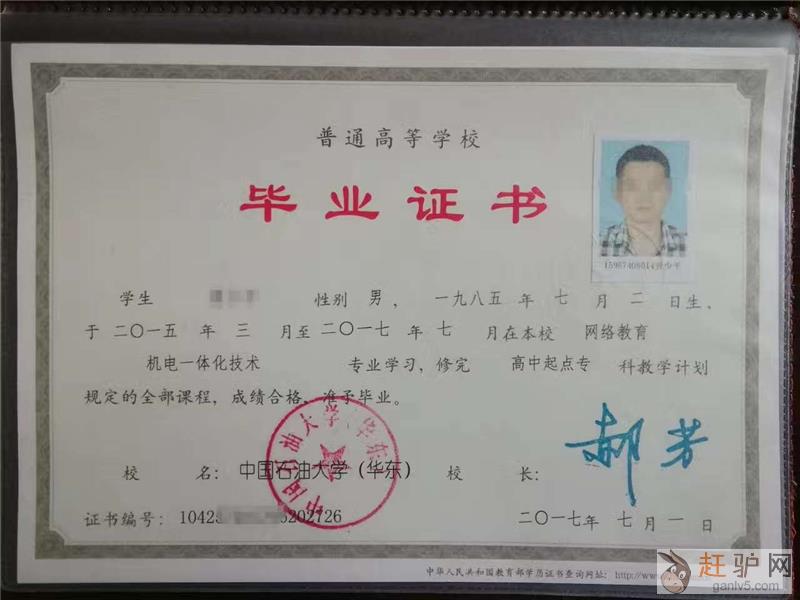 普通高等学校
毕业证书
学生 性别 男， 一九八五 年 七 月 二 日生，
于 二〇一五 年 三 月至 二〇一七 年 七 月在本校 网络教育
机电一体化技术 专业学习，修完 高中起点专 科教学计划
规定的全部课程，成绩合格，准予毕业。
中国石油大学(华东)
校 名： 中国石油大学（华东） 校 长： 郝芳
证书编号： 1042 202726 二〇一七年 七 月 一 日
中华人民共和国教育部学历证书查询网址： http://www.
赶驴网
ganlv5.com